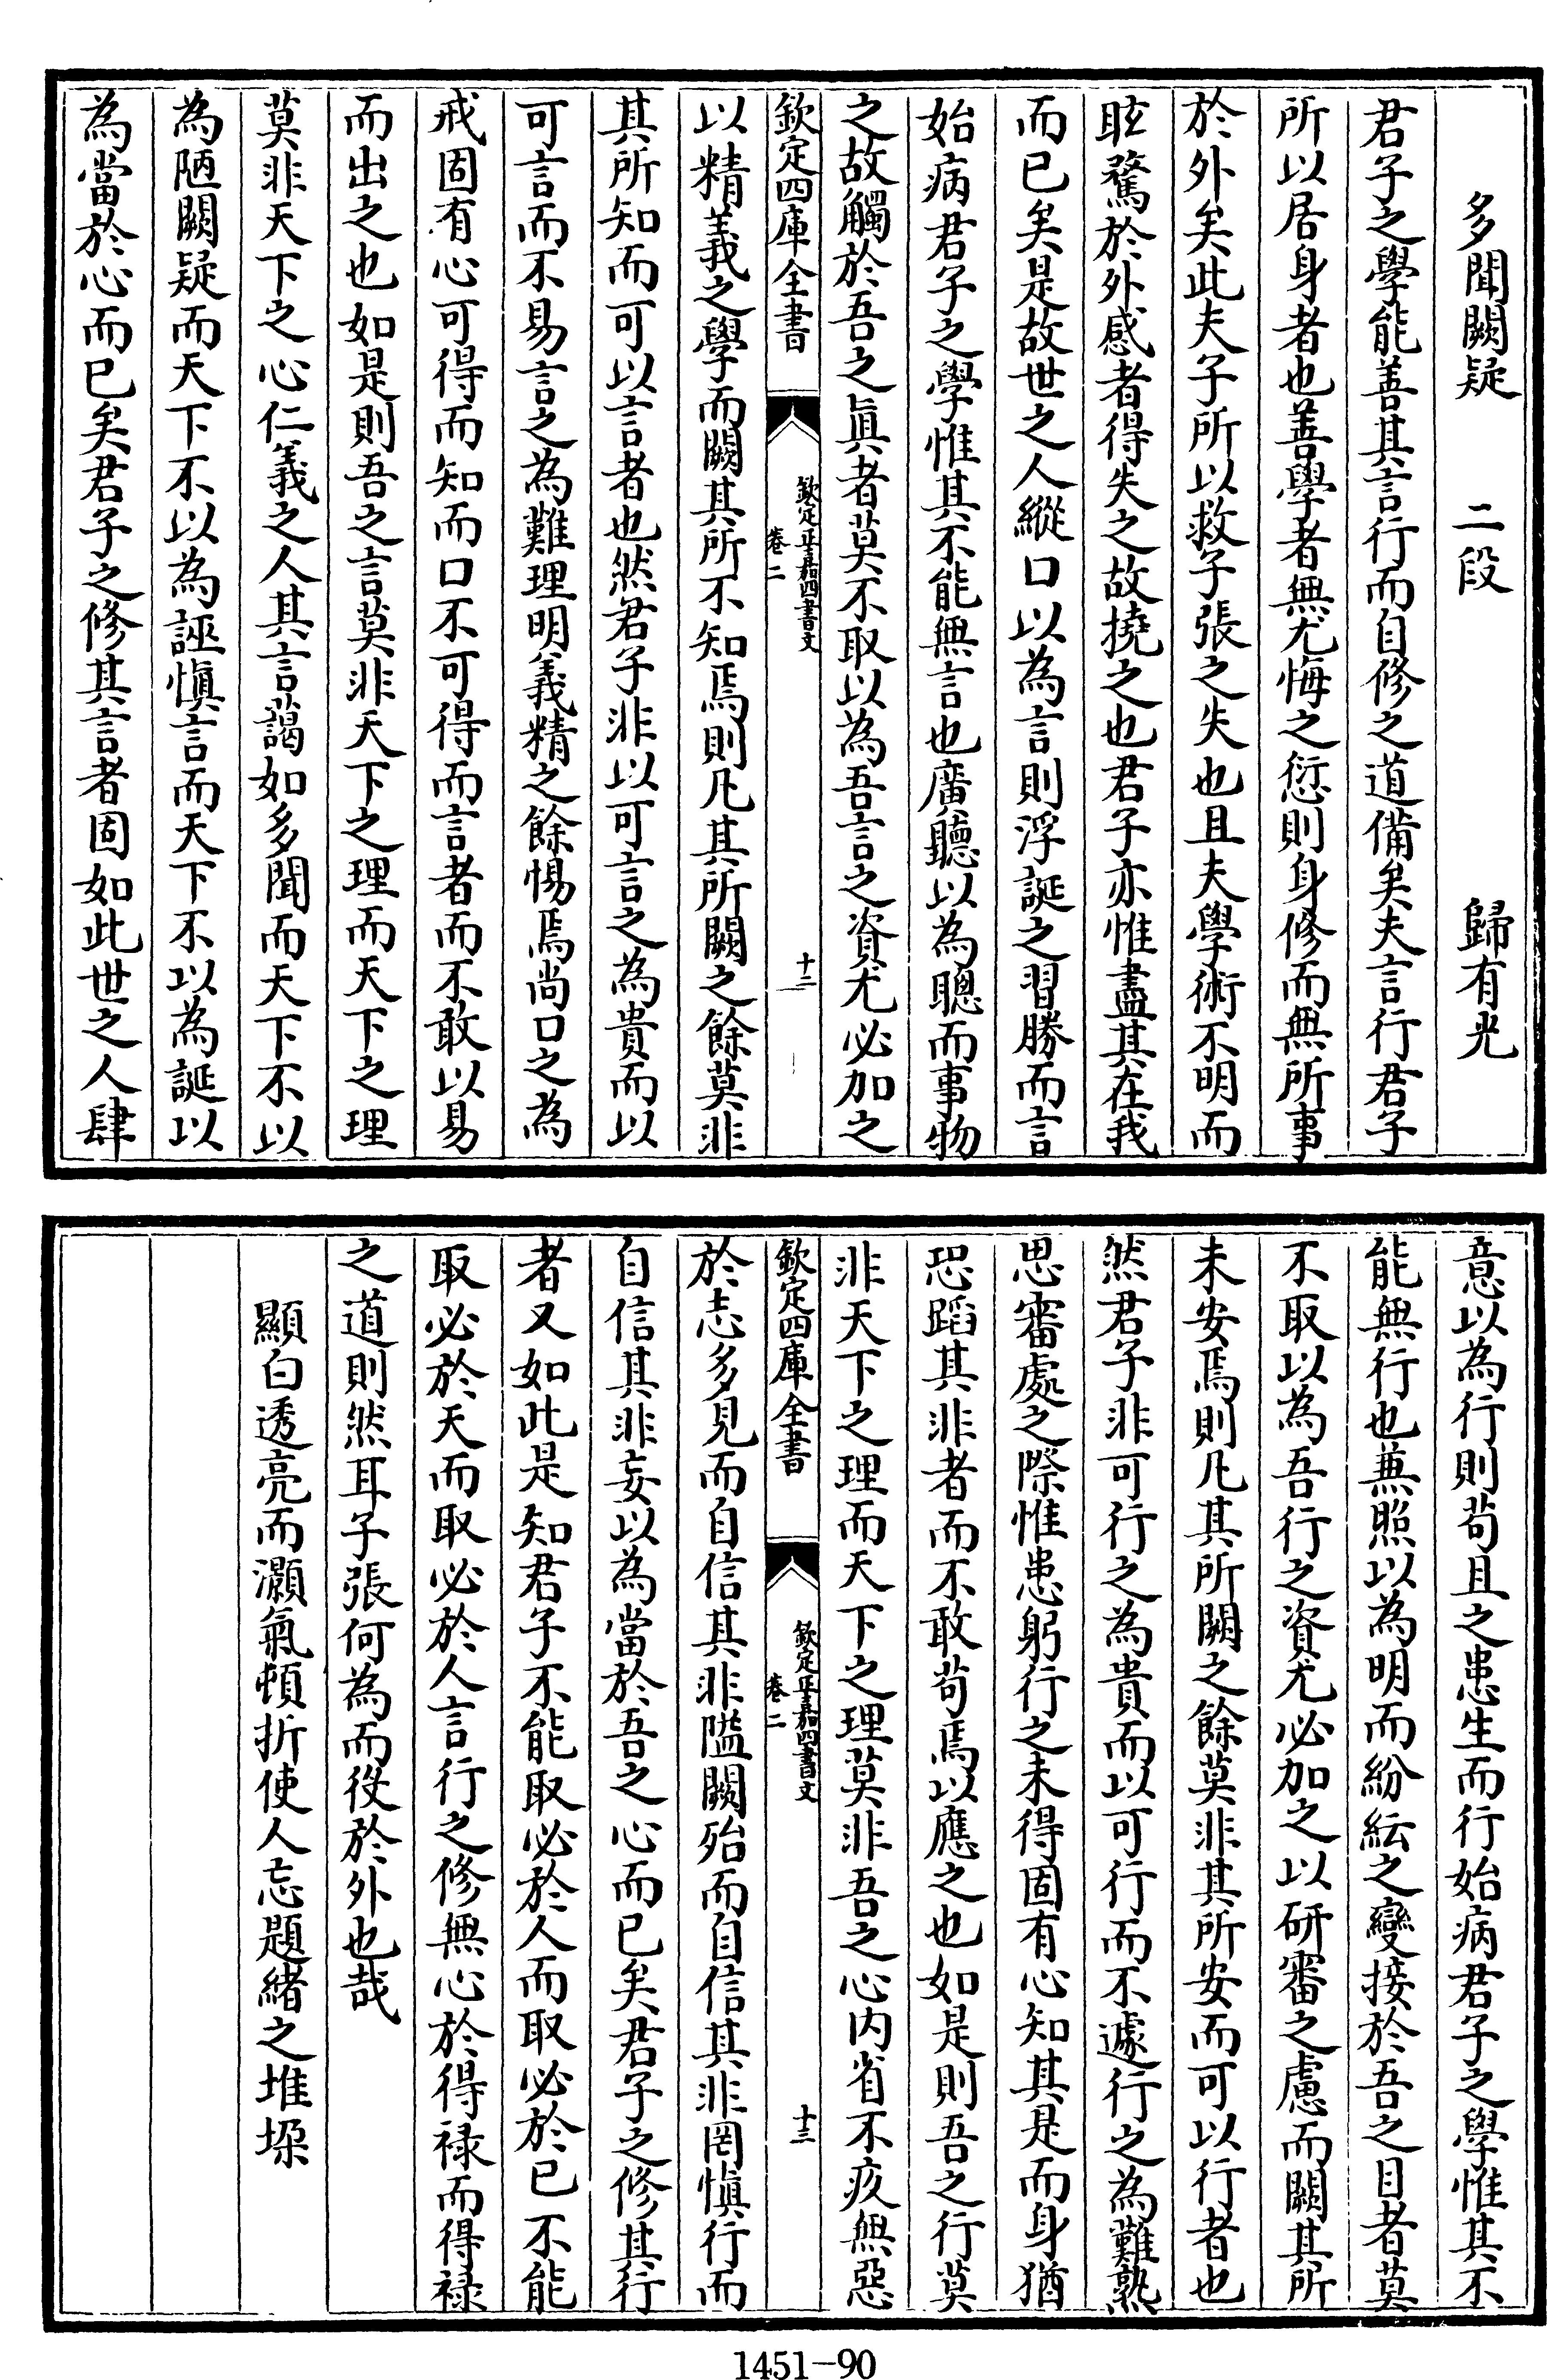 多聞闕疑　二段　歸有光
君子之學能善其言行而自修之道備矣夫言行君子
所以居身者也善學者無尤悔之愆則身修而無所事
於外矣此夫子所以救子張之失也且夫學術不明而
眩騖於外感者得失之故撓之也君子亦惟盡其在我
而已矣是故世之人縱口以為言則浮誕之習勝而言
始病君子之學惟其不能無言也廣聽以為聰而事物
之故觸於吾之眞者莫不取以為吾言之資尤必加之
欽定四庫全書
欽定正嘉四書文
卷二
十二
以精義之學而闕其所不知焉則凡其所闕之餘莫非
其所知而可以言者也然君子非以可言之為貴而以
可言而不易言之為難理明義精之餘惕焉尚口之為
戒固有心可得而知而口不可得而言者而不敢以易
而出之也如是則吾之言莫非天下之理而天下之理
莫非天下之心仁義之人其言藹如多聞而天下不以
為陋闕疑而天下不以為誣愼言而天下不以為誕以
為當於心而已矣君子之修其言者固如此世之人肆
意以為行則茍且之患生而行始病君子之學惟其不
能無行也兼照以為明而紛紜之變接於吾之目者莫
不取以為吾行之資尤必加之以研審之慮而闕其所
未安焉則凡其所闕之餘莫非其所安而可以行者也
然君子非可行之為貴而以可行而不遽行之為難熟
思審處之際惟患躬行之未得固有心知其是而身猶
恐蹈其非者而不敢茍焉以應之也如是則吾之行莫
非天下之理而天下之理莫非吾之心内省不疚無惡
欽定四庫全書
欽定正嘉四書文
卷二
十三
於志多見而自信其非隘闕殆而自信其非罔愼行而
自信其非妄以為當於吾之心而已矣君子之修其行
者又如此是知君子不能取必於人而取必於已不能
取必於天而取必於人言行之修無心於得祿而得祿
之道則然耳子張何為而役於外也哉
顯白透亮而灝氣頓折使人忘題緒之堆垛
1451-90